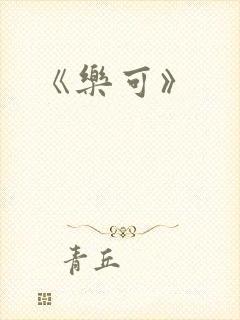 《樂可》
青丘